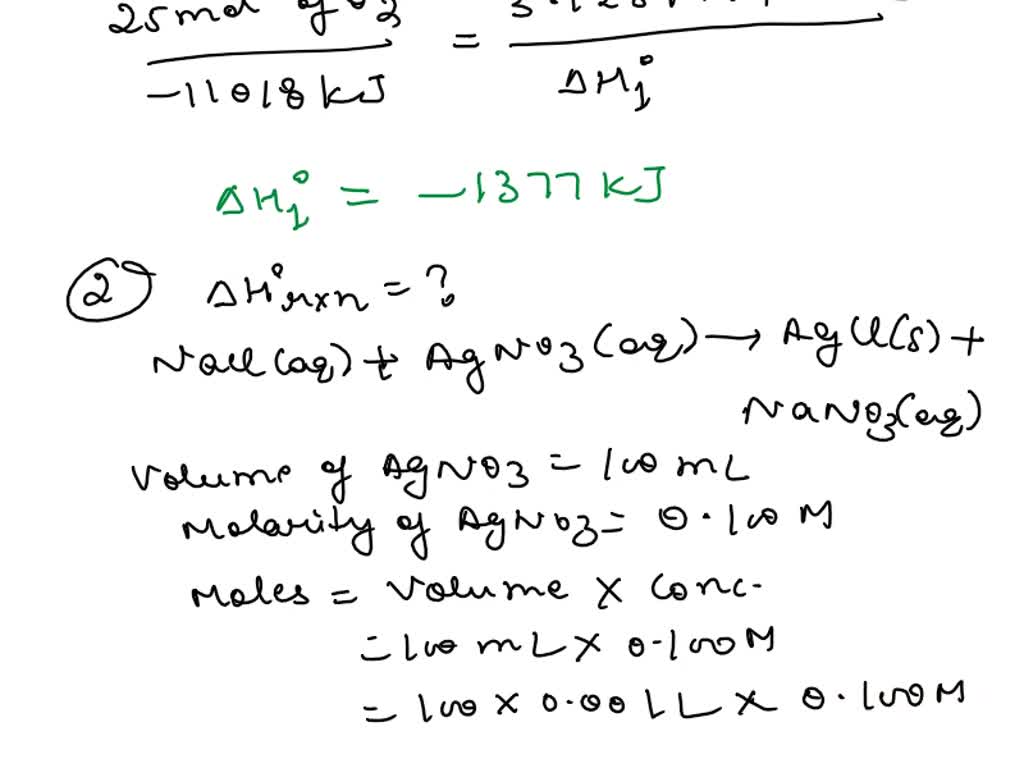 25 mol of O2 =
-11018 kJ ΔH1°
ΔH1° = -1377 kJ
2 ΔH°rxn = ?
NaCl(aq) + AgNO3(aq) → AgCl(s) +
NaNO3(aq)
Volume of AgNO3 = 100 mL
Molarity of AgNO3 = 0.100 M
Moles = Volume × Conc.
= 100 mL × 0.100 M
= 100 × 0.001 L × 0.100 M